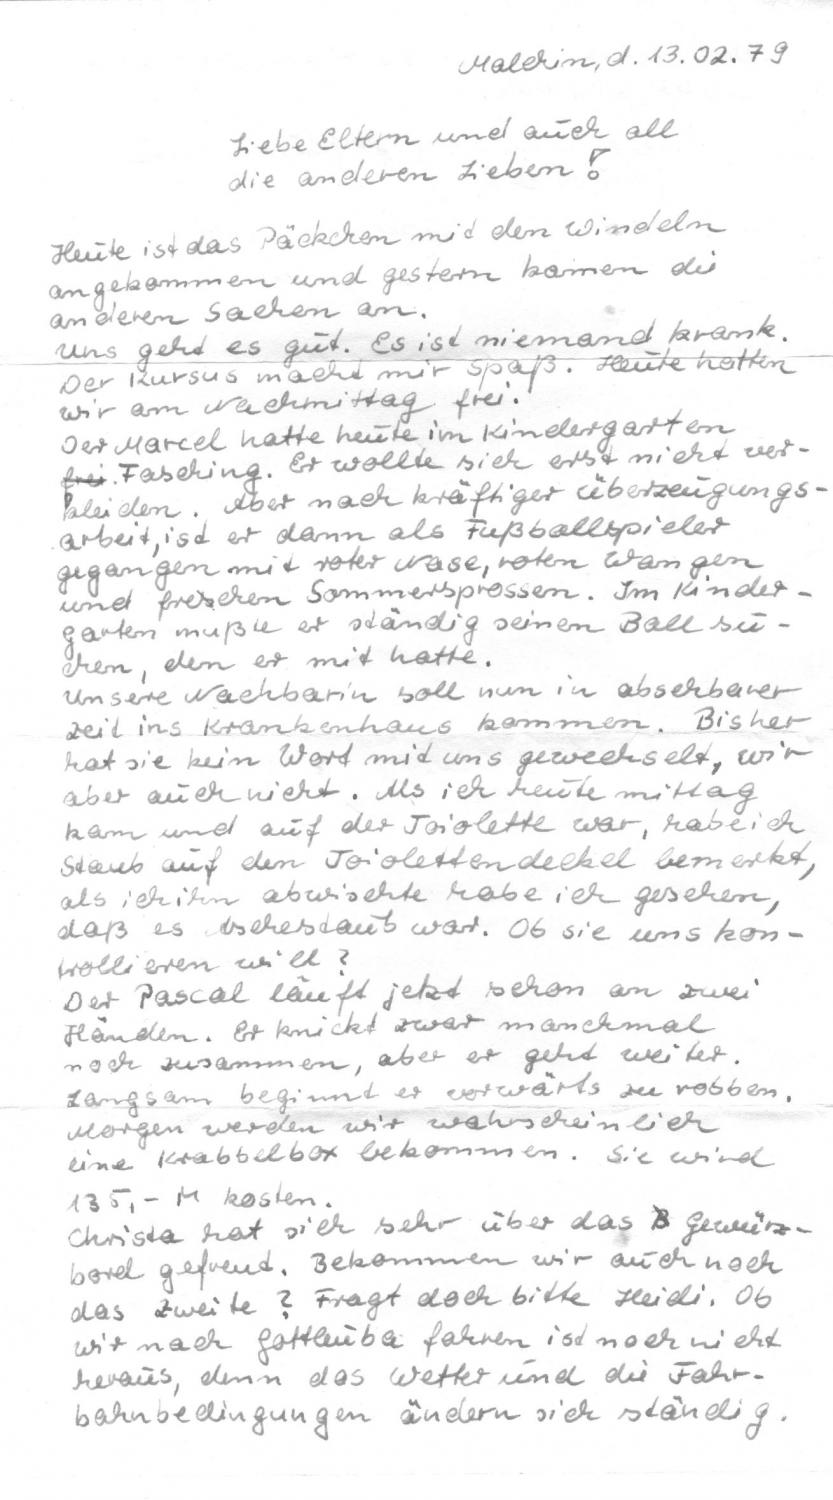 Malchin, d. 13.02.79
Liebe Eltern und auch all
die anderen Lieben!
Heute ist das Päckchen mit den Windeln
angekommen und gestern kamen die
anderen Sachen an.
Uns geht es gut. Es ist niemand krank.
Der Kursus macht mir Spaß. Heute hatten
wir am Nachmittag frei.
Der Marcel hatte heute im Kindergarten
frei Fasching. Er wollte sich erst nicht ver-
kleiden. Aber nach kräftiger Überzeugungs-
arbeit, ist er dann als Fußballspieler
gegangen mit roter Nase, roten Wangen
und frechen Sommersprossen. Im Kinder-
garten mußte er ständig seinen Ball su-
chen, den er mit hatte.
Unsere Nachbarin soll nun in absehbarer
Zeit ins Krankenhaus kommen. Bisher
hat sie kein Wort mit uns gewechselt, wir
aber auch nicht. Als ich heute mittag
kam und auf der Toiolette war, habe ich
Staub auf den Toiolettendeckel bemerkt,
als ich ihn abwischte habe ich gesehen,
daß es Aschestaub war. Ob sie uns kon-
trollieren will?
Der Pascal läuft jetzt schon an zwei
Händen. Er knickt zwar manchmal
noch zusammen, aber er geht weiter.
Langsam beginnt er vorwärts zu robben.
Morgen werden wir wahrscheinlich
eine Krabbelbox bekommen. Sie wird
135,- M kosten.
Christa hat sich sehr über das B Gewürz-
bord gefreut. Bekommen wir auch noch
das zweite? Fragt doch bitte Heidi. Ob
wir nach Gottleuba fahren ist noch nicht
heraus, denn das Wetter und die Fahr-
bahnbedingungen ändern sich ständig.